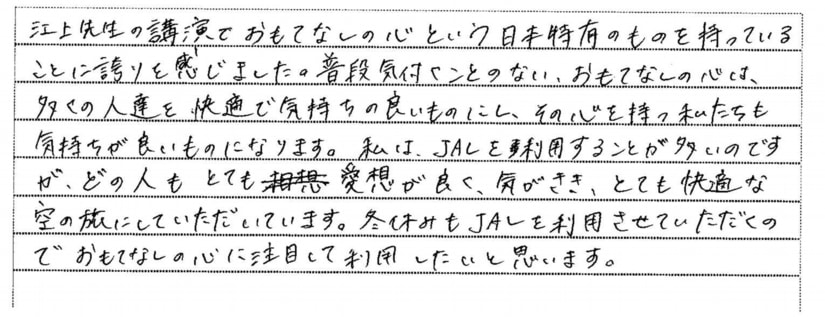 江上先生の講演でおもてなしの心という日本特有のものを持っている
ことに誇りを感じました。普段気付くことのない、おもてなしの心は、
多くの人達を快適で気持ちの良いものにし、その心を持つ私たちも
気持ちが良いものになります。私は、JALを利用することが多いのです
が、どの人もとても愛想が良く、気がきき、とても快適な
空の旅にしていただいています。冬休みもJALを利用させていただくの
でおもてなしの心に注目して利用したいと思います。